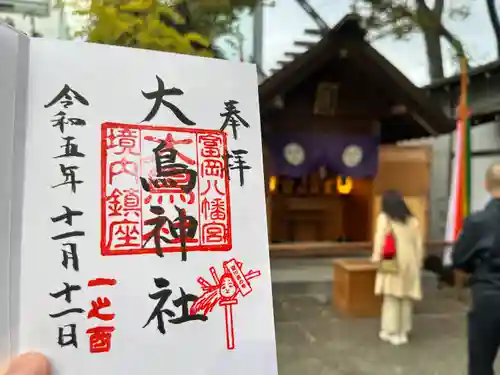 奉拝
大鳥神社
富岡八幡宮
境内鎮座
令和五年十一月十一日
一の酉